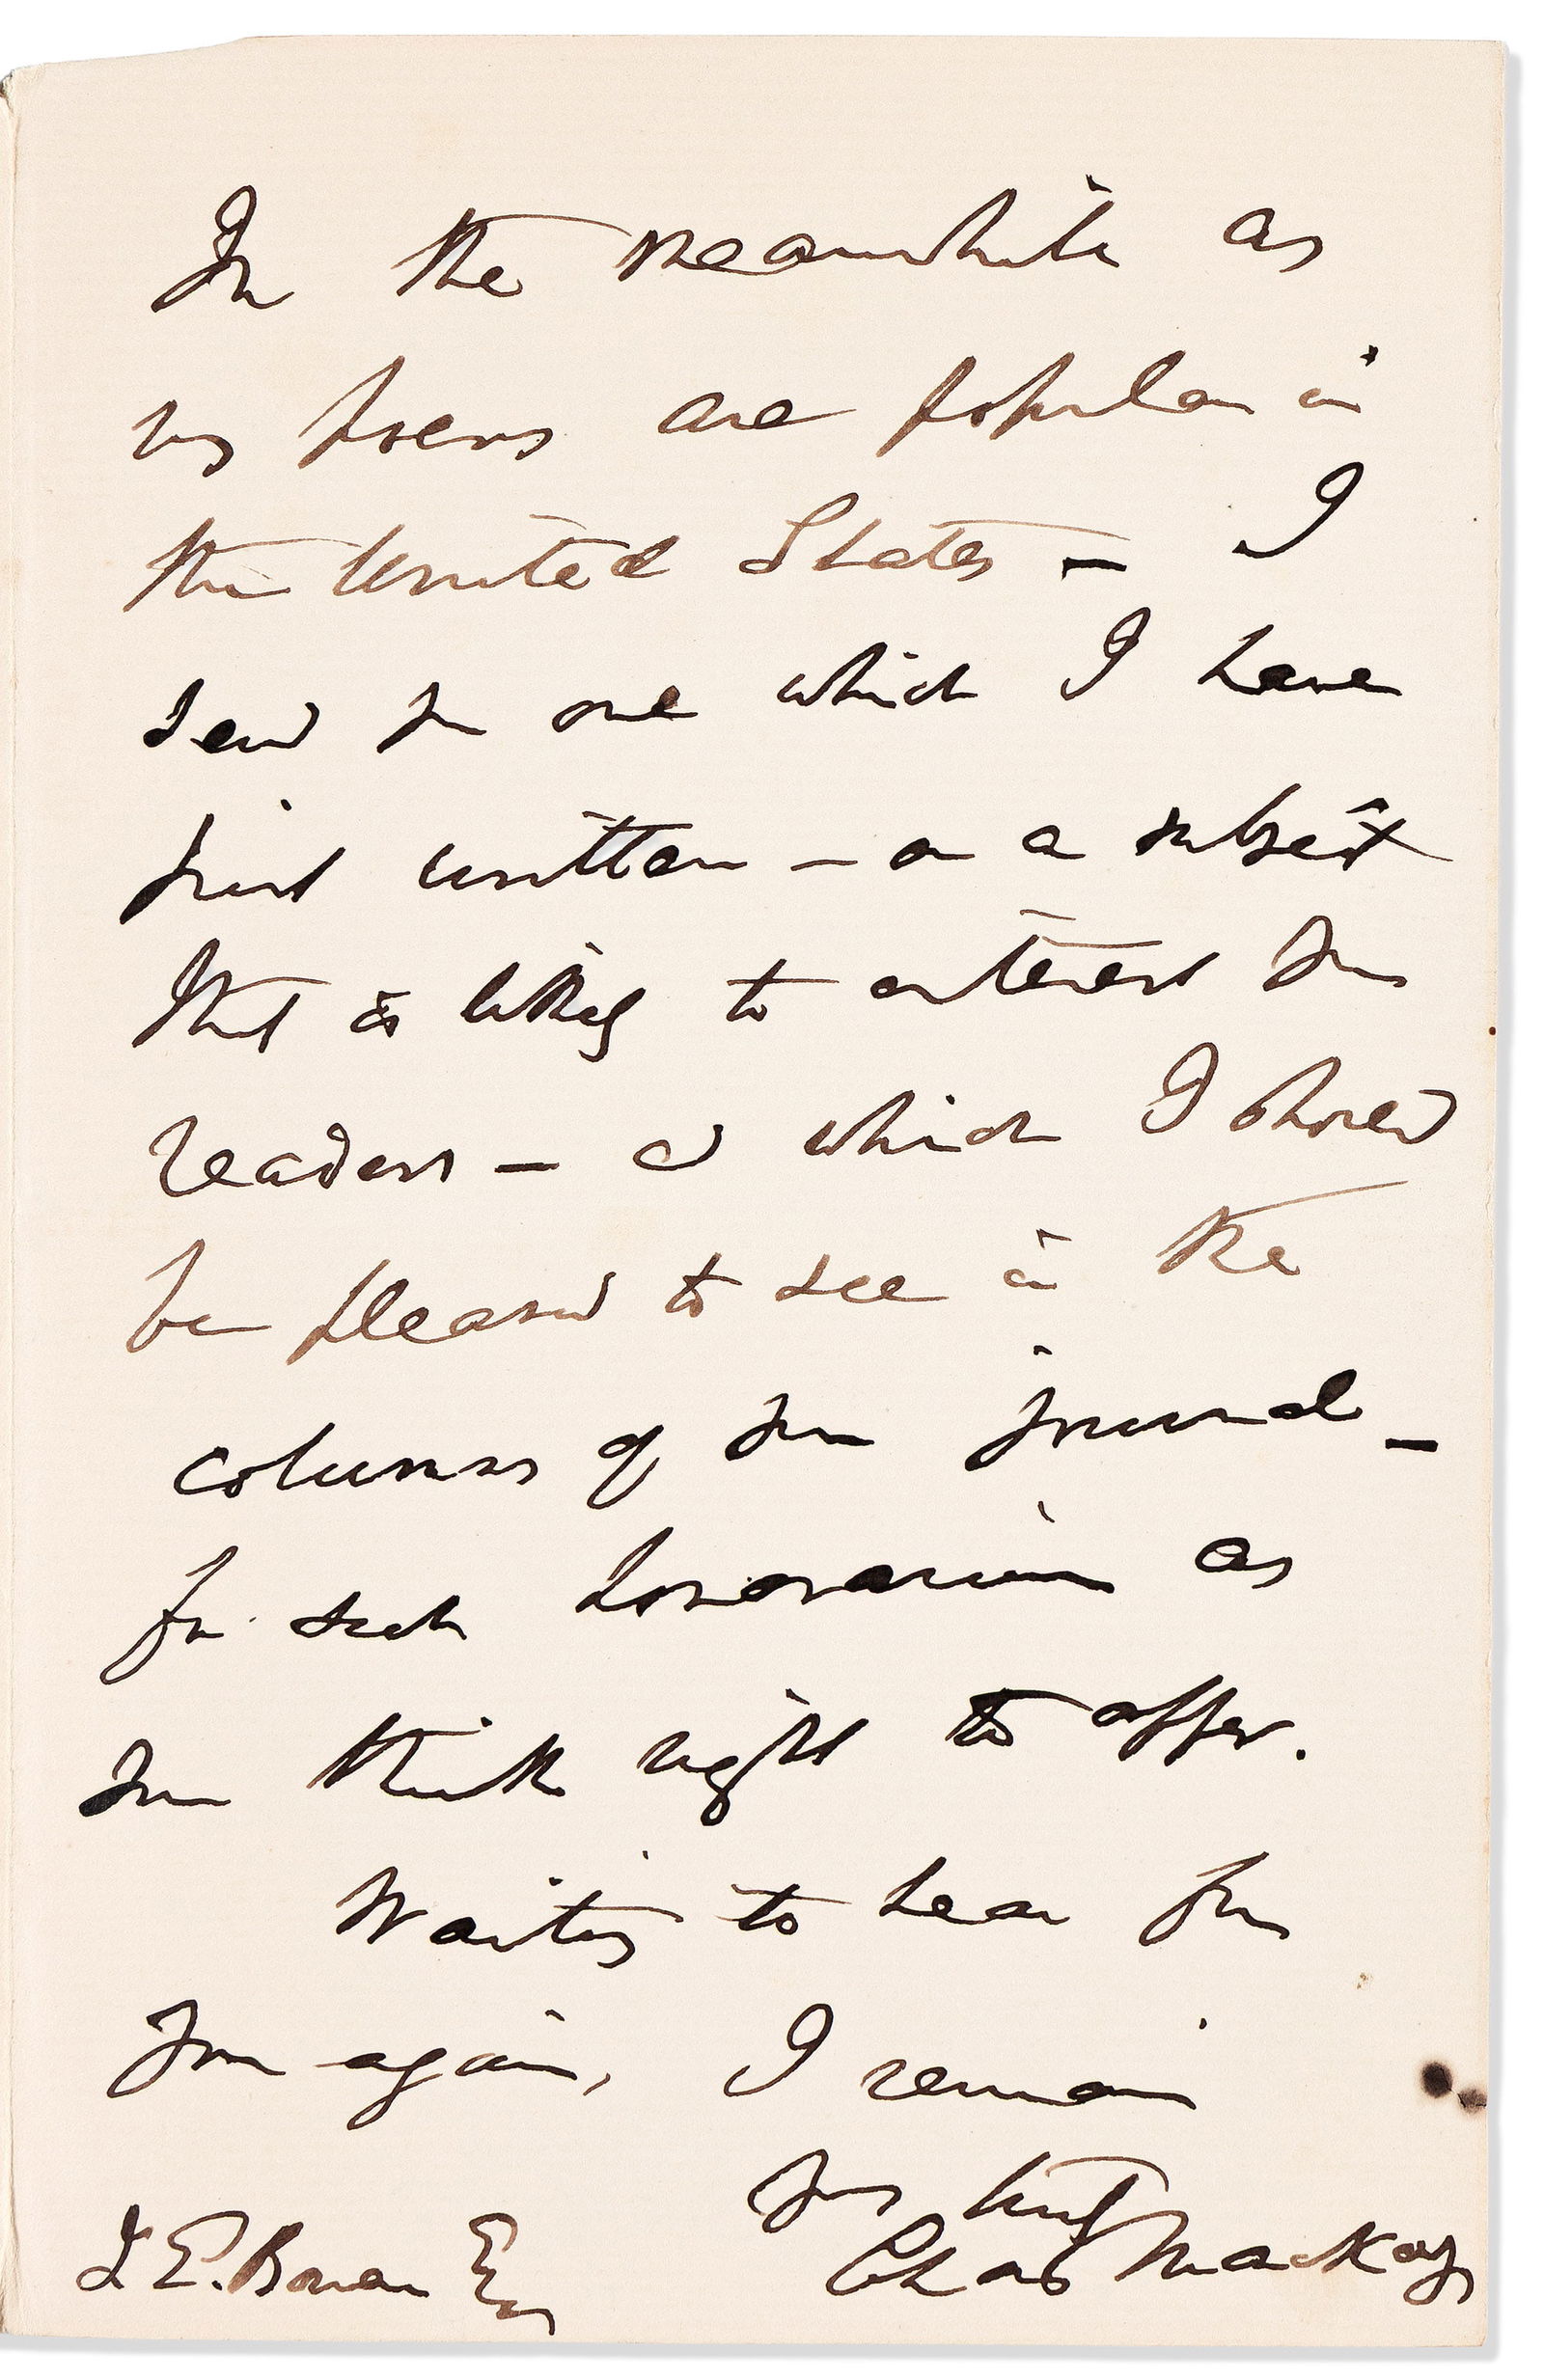 In the meanwhile as
my poems are popular in
the United States – I
send you one which I have
just written – on a subject
that is likely to interest your
readers – & which I should
be pleased to see in the
columns of your journal –
for such honorarium as
you think right to offer.
Waiting to hear from
you again, I remain
Yours truly
Chas Mackay
E. Bonar Esq